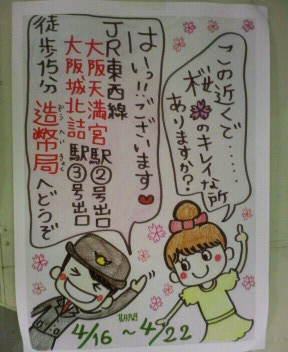 この近くで……
桜のキレイな所
ありますか？
はいっ!!ございます♥
JR東西線
大阪天満宮駅②号出口
大阪城北詰駅③号出口
徒歩15分 造幣局へどうぞ
ぞうへいきょく
4/16 〜 4/22